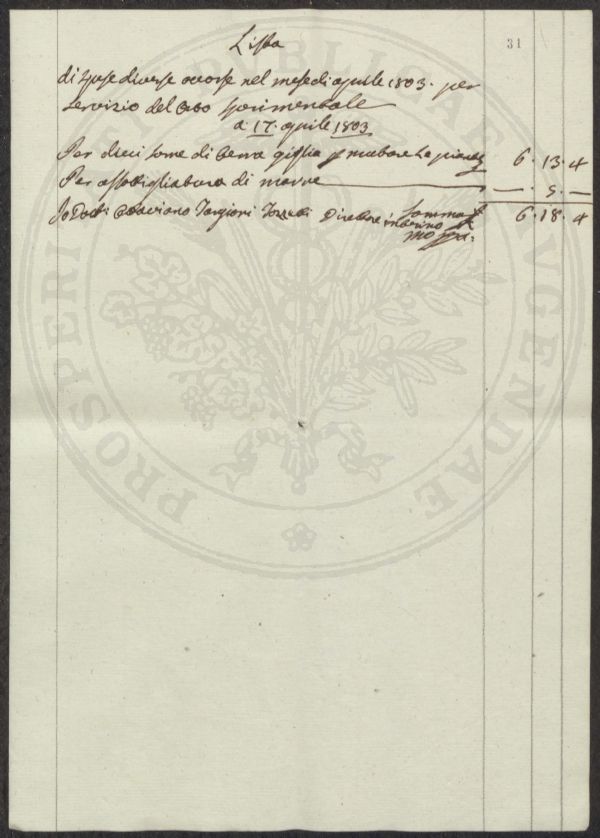 31
Lista
di spese diverse occorse nel mese di aprile 1803. per
servizio del Orto sperimentale
a 17. aprile 1803
Per dieci some di terra giglia p mutare le piante 6. 13. 4
Per assottigliatura di marre — . 5. —
Somma £ 6. 18. 4
Io Dott. Ottaviano Targioni Tozzetti Direttore interino
mo ppa.
PROSPERITATI PUBLICAE AUGENDAE